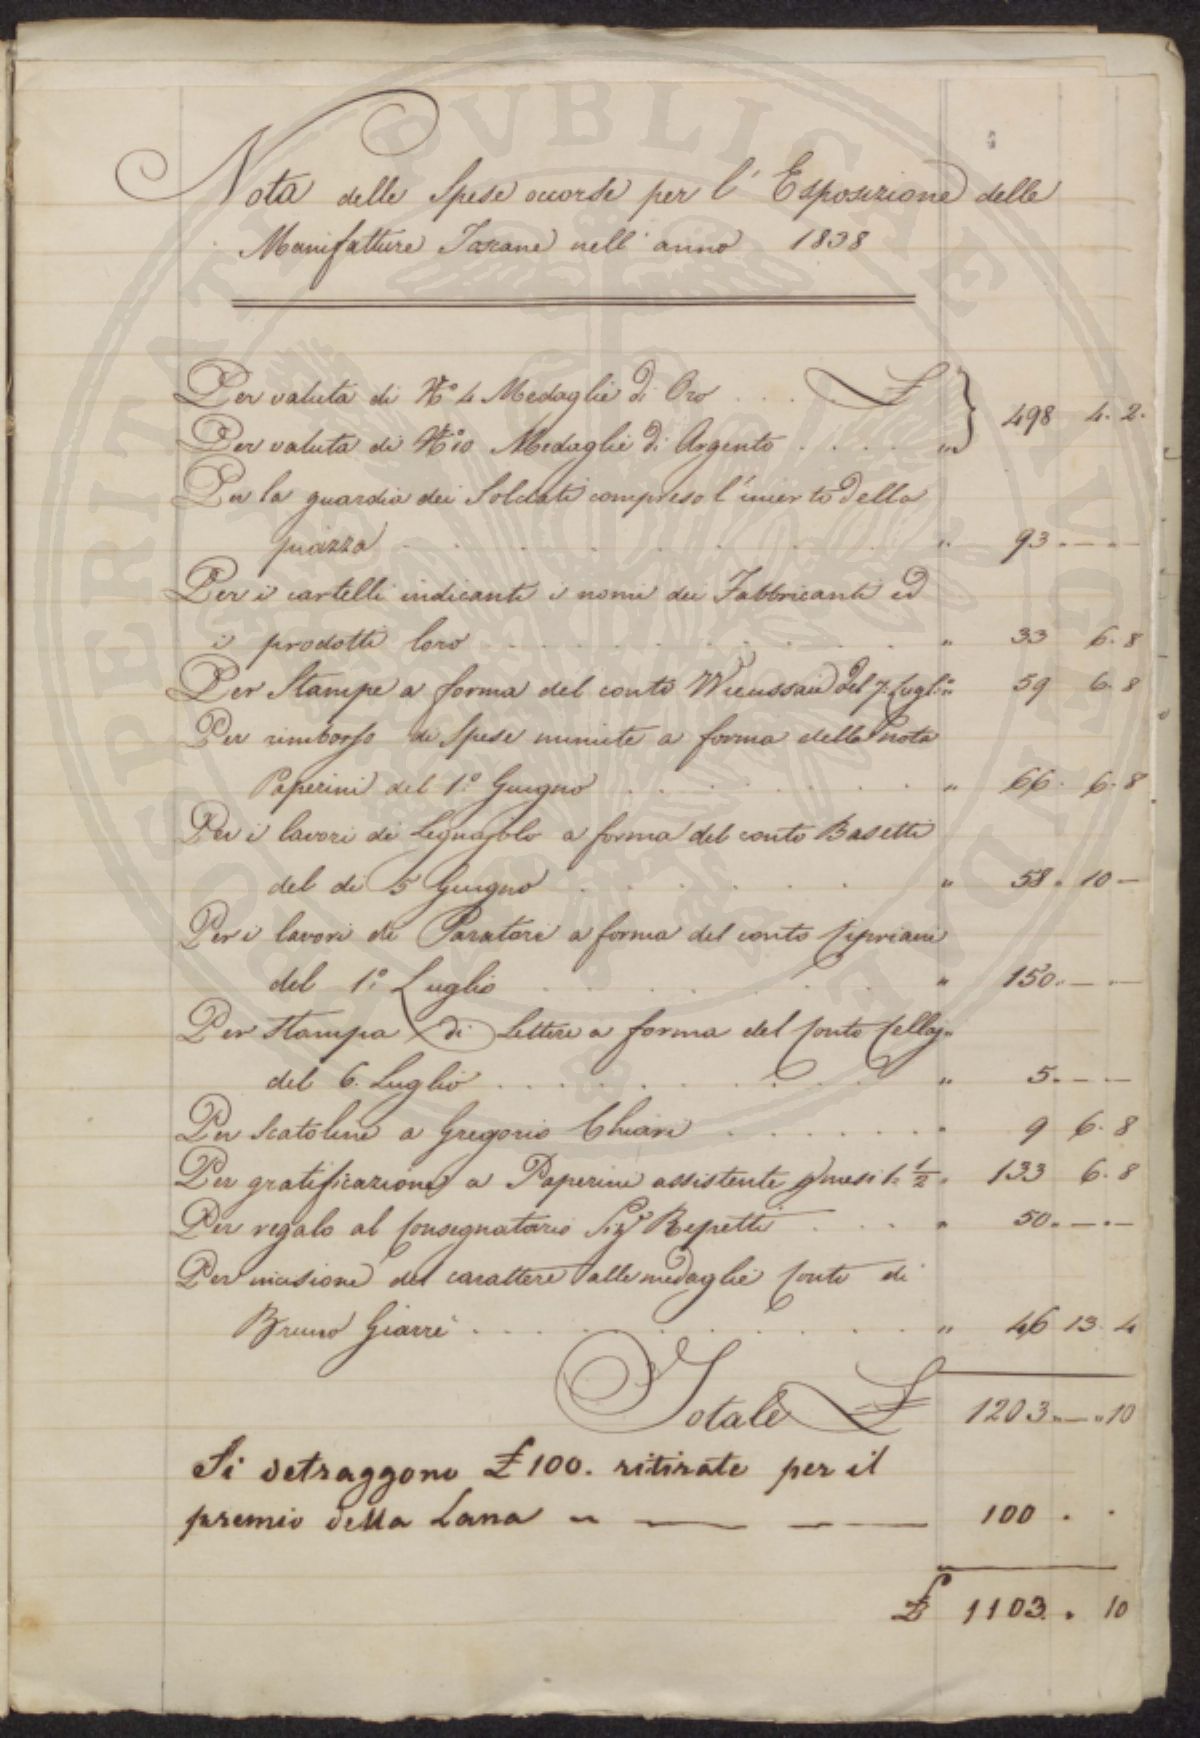 PROSPERITATI PVBLICAE AVGENDAE
Nota delle Spese occorse per l'Esposizione delle
Manifatture Toscane nell'anno 1838
Per valuta di No. 4 Medaglie di Oro . . . . £
498 4. 2.
Per valuta di No. 10 Medaglie di Argento . . . . "
Per la guardia dei Soldati compreso l' della
piazza . . . . . . . . . . " 93. — . —
Per i cartelli indicanti i nomi dei Fabbricanti ed
i prodotti loro . . . . . . . . . " 33 6. 8
Per Stampe a forma del conto Wieussaie del 7. Lugl.o " 59 6. 8
Per rimborso di Spese minute a forma della nota
Paperini del 1.o Giugno . . . . . . . " 66. 6. 8.
Per i lavori di Legnajolo a forma del conto Basetti
del di 5 Giugno . . . . . . . " 58. 10 —
Per i lavori di Paratore a forma del conto Cipriani
del 1.o Luglio . . . . . . . " 150. — . —
Per Stampa di Lettere a forma del Conto Cellaj "
del 6. Luglio . . . . . . . . . " 5. — . —
Per scatoline a Gregorio Chiari . . . . . . . " 9 6. 8
Per gratificazione a Paperini assistente p mesi 1. 1/2 " 133 6. 8
Per regalo al Consegnatario Sigr Repetti . . . . " 50. — . —
Per incisione del carattere alle medaglie Conto di
Bruno Giarrè . . . . . . . . . . " 46 13. 4
Totale £ 1203. — . 10
Si detraggono £ 100. ritirate per il
premio della Lana " — — 100 . .
£ 1103. . 10